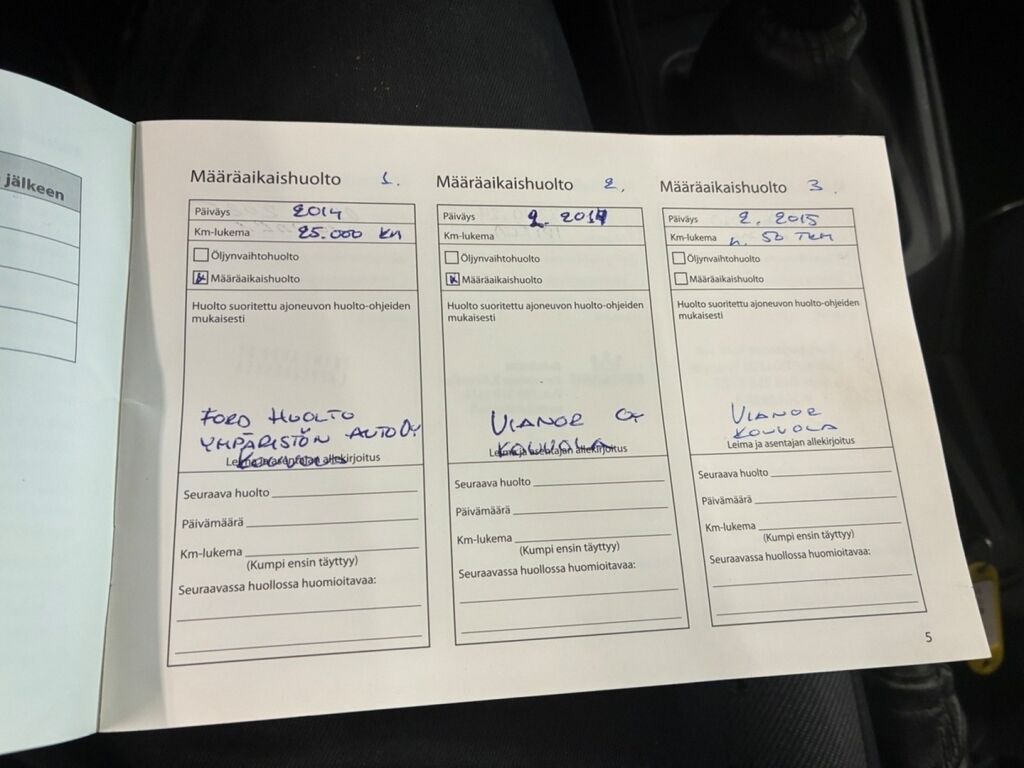 jälkeen
Määräaikaishuolto 1.
Päiväys 2014
Km-lukema 25.000 km
Öljynvaihtohuolto
x Määräaikaishuolto
Huolto suoritettu ajoneuvon huolto-ohjeiden
mukaisesti
FORD HUOLTO
YMPÄRISTÖN AUTO OY
Leima ja asentajan allekirjoitus
Seuraava huolto
Päivämäärä
Km-lukema
(Kumpi ensin täyttyy)
Seuraavassa huollossa huomioitavaa:
Määräaikaishuolto 2.
Päiväys 2. 2014
Km-lukema
Öljynvaihtohuolto
x Määräaikaishuolto
Huolto suoritettu ajoneuvon huolto-ohjeiden
mukaisesti
VIANOR OY
KOUVOLA
Leima ja asentajan allekirjoitus
Seuraava huolto
Päivämäärä
Km-lukema
(Kumpi ensin täyttyy)
Seuraavassa huollossa huomioitavaa:
Määräaikaishuolto 3.
Päiväys 2. 2015
Km-lukema n. 50 TKM
Öljynvaihtohuolto
Määräaikaishuolto
Huolto suoritettu ajoneuvon huolto-ohjeiden
mukaisesti
VIANOR
KOUVOLA
Leima ja asentajan allekirjoitus
Seuraava huolto
Päivämäärä
Km-lukema
(Kumpi ensin täyttyy)
Seuraavassa huollossa huomioitavaa:
5